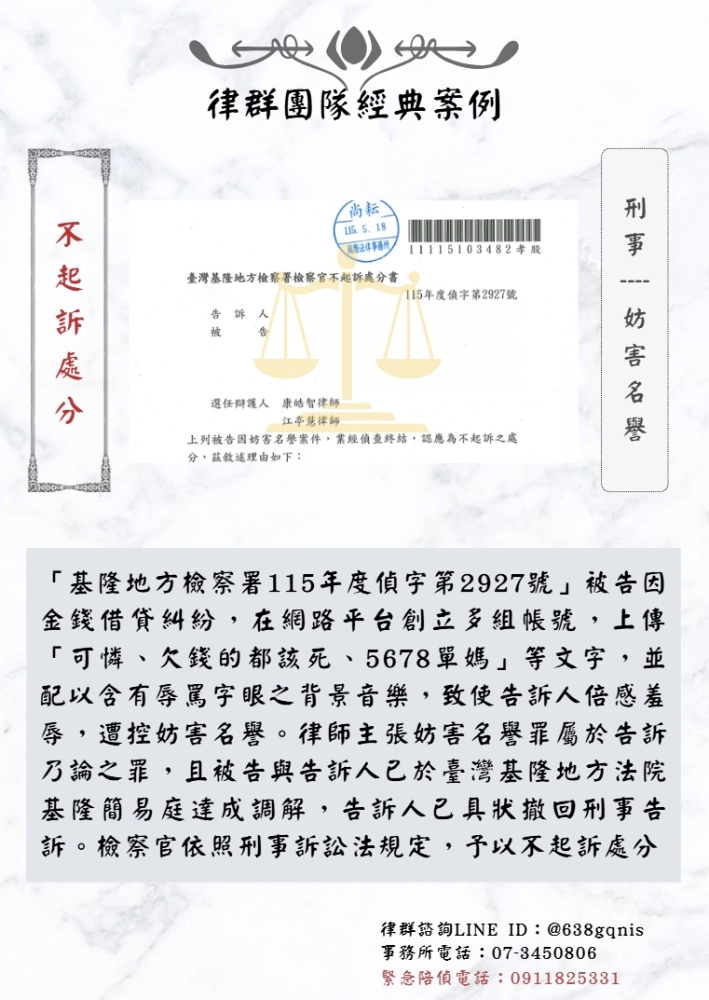 律群團隊經典案例
不起訴處分
刑事----妨害名譽
尚耘
115.5.18
國際法律事務所
11115103482孝股
臺灣基隆地方檢察署檢察官不起訴處分書
115年度偵字第2927號
告訴人
被告
選任辯護人 康皓智律師
江亭慧律師
上列被告因妨害名譽案件，業經偵查終結，認應為不起訴之處
分，茲敘述理由如下：
「基隆地方檢察署115年度偵字第2927號」被告因
金錢借貸糾紛，在網路平台創立多組帳號，上傳
「可憐、欠錢的都該死、5678單媽」等文字，並
配以含有辱罵字眼之背景音樂，致使告訴人倍感羞
辱，遭控妨害名譽。律師主張妨害名譽罪屬於告訴
乃論之罪，且被告與告訴人已於臺灣基隆地方法院
基隆簡易庭達成調解，告訴人已具狀撤回刑事告
訴。檢察官依照刑事訴訟法規定，予以不起訴處分
律群諮詢LINE ID：@638gqnis
事務所電話：07-3450806
緊急陪偵電話：0911825331